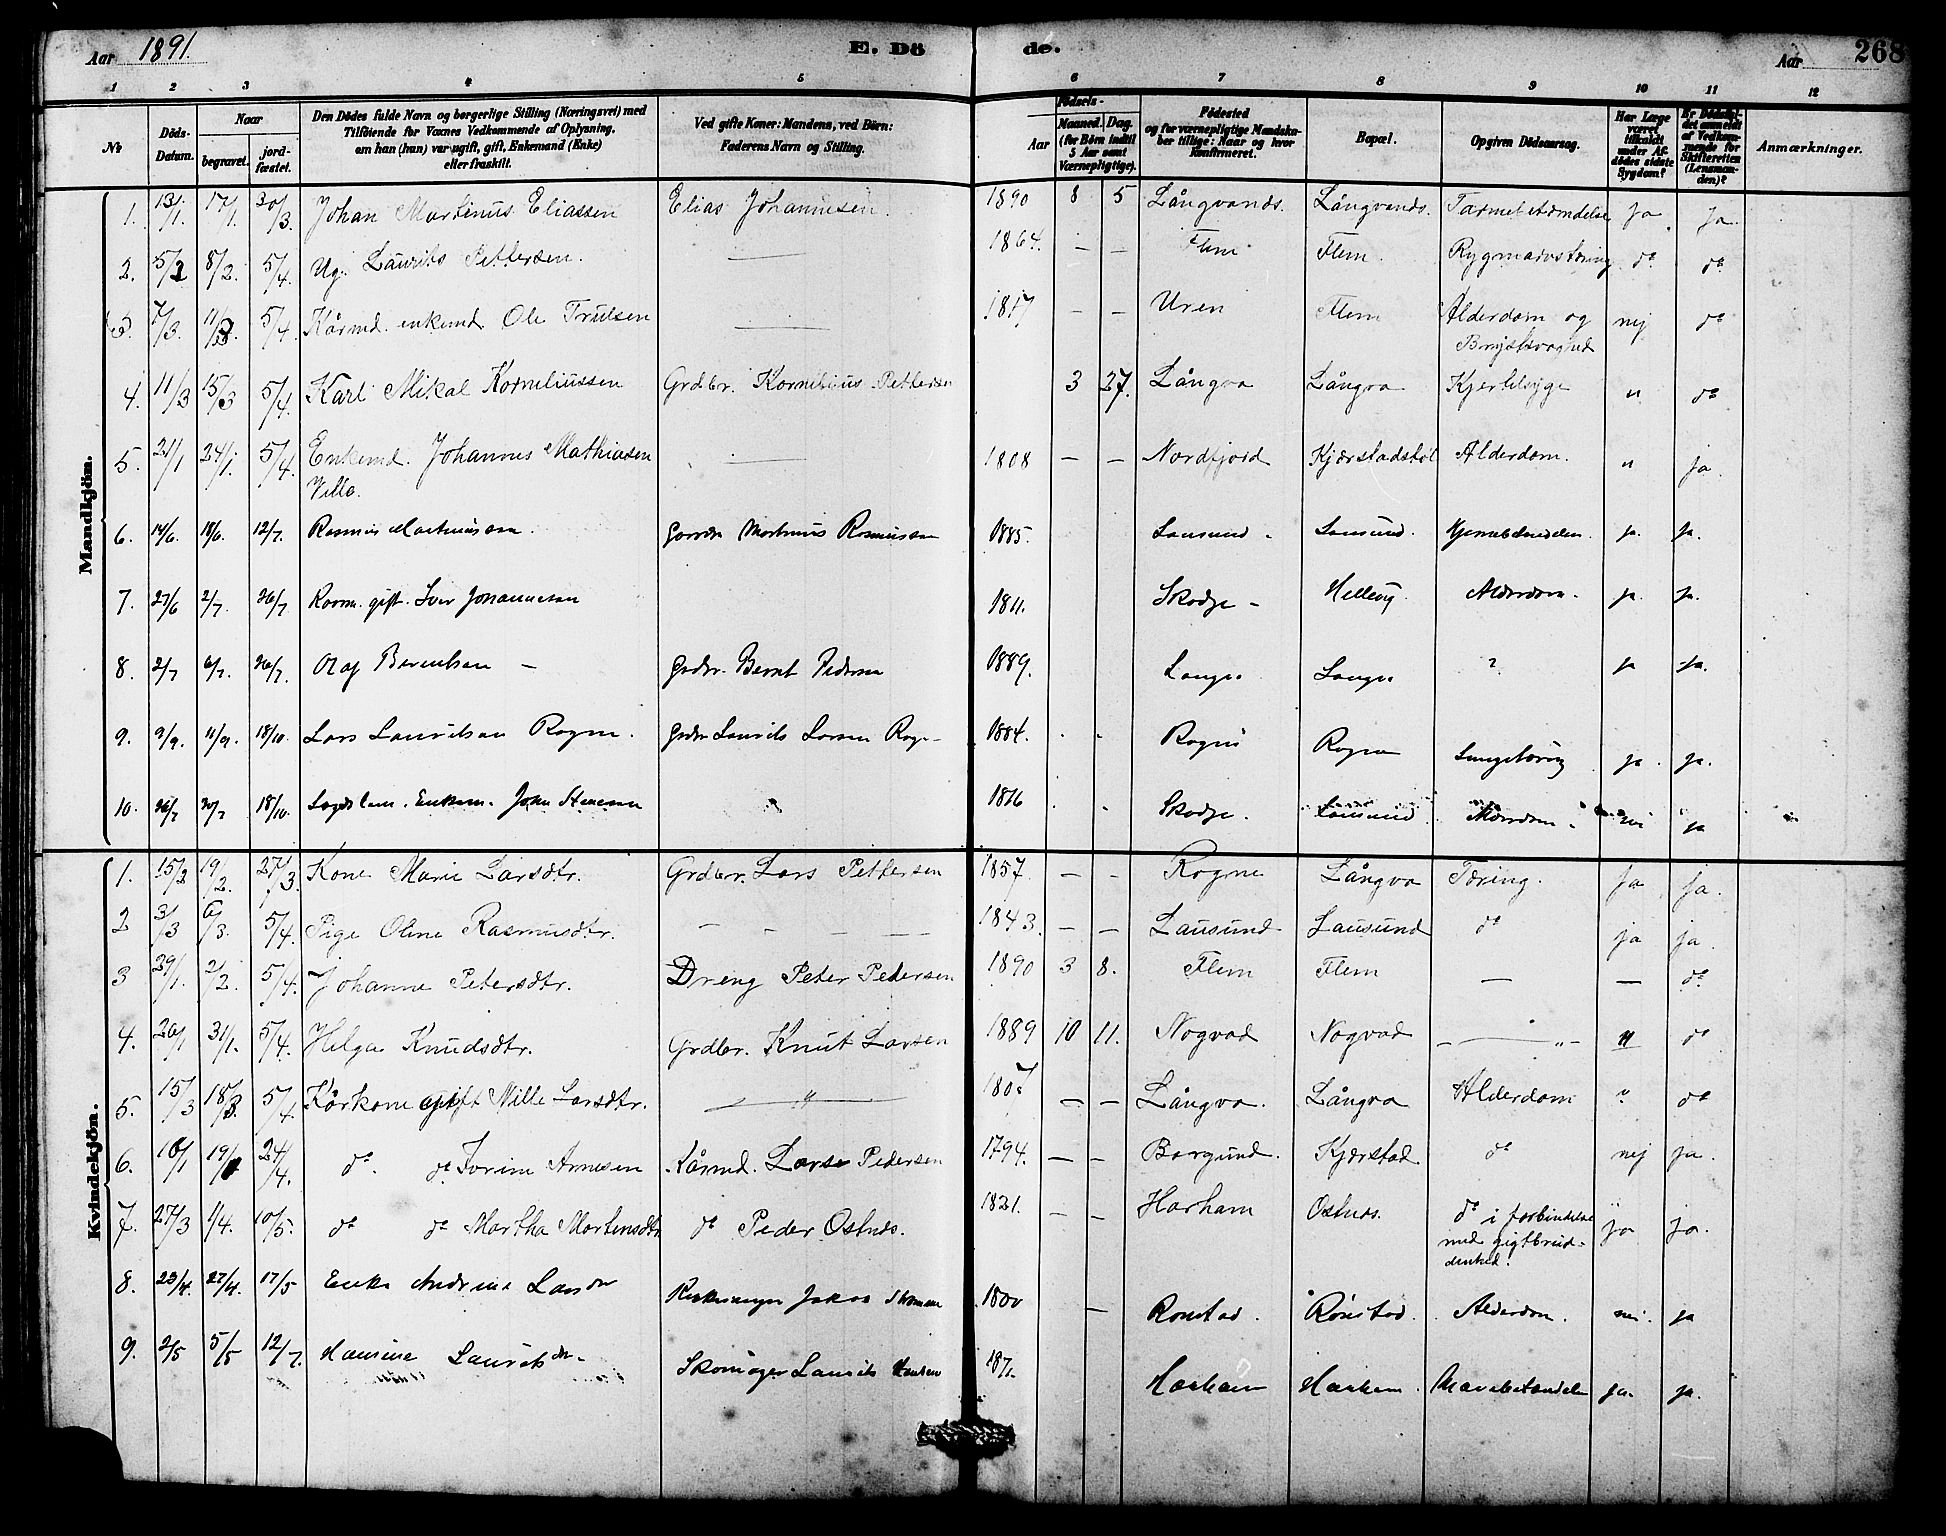 Aar 1891. E. Dö de. Aar 268
1 2 3 4 5 6 7 8 9 10 11 12
No
Döds-Datum.
Naar
begravet.
jord-fæstet.
Den Dödes fulde Navn og borgerlige Stilling (Næringsvei) med
Tilföiende for Voxnes Vedkommende af Oplysning,
om han (hun) var ugift, gift, Enkemand (Enke)
eller fraskilt.
Ved gifte Koner: Mandens, ved Börn:
Faderens Navn og Stilling.
Födsels-
Aar
Maaned. Dag.
(for Börn indtil
5 Aar samt
Værnepligtige).
Födested
og for værnepligtige Mandska-
ber tillige: Naar og hvor
Konfirmeret.
Bopæl.
Opgiven Dödsaarsag.
Har Læge
været
tilkaldt
under Af-
dödes sidste
Sygdom?
Er Dödsfal-
det anmeldt
af Vedkom-
mende for
Skifteretten
(Lensman-
den)?
Anmærkninger.
Mandkjön.
1. 13/1. 17/1. 30/3. Johan Martinus Eliassen Elias Johannesen. 1890 8 5 Långvands. Långvands. Tarmbetændelse ja ja
2. 5/2 8/2. 5/4. Ug. Laurits Pettersen. — 1864. — — Flem Flem. Rygmarvstæring do do
3. 7/3. 11/3. 5/4. Kårmd. enkemd Ole Trulsen — 1817 — — Uren Flem Alderdom og nej do
Brystsvaghed
4. 11/3 15/3 5/4. Karl Mikal Korneliussen Grdbr. Kornelius Pettersen 3 27. Långva Långva Kjertelsyge " do
5. 21/1 24/1. 5/4. Enkemd. Johannes Mathiasen — 1808 — — Nordfjord Kjærstadstøl Alderdom. " ja.
Villa.
6. 14/6. 18/6. 12/7. Rasmus Martinussen. Martinus Rasmussen 1885. Lausund. Lausund. ja. ja.
7. 27/6 2/7. 26/7 gift. Iver Johannesen 1811. Skodje - Hellevig. Alderdom. ja. ja.
8. 2/7 6/7. 26/7. Olaf Berentsen — Grdbr. Bernt Pedersen 1889. Langva Langva ? ja ja.
9. 9/9. 11/9. 18/10. Lars Lauritsen Rogne. Grdbr Laurits Larsen Rogne 1884. Rogne Rogne Lungetæring ja. ja.
10. 26/7 30/7 18/10. Enkem. John 1816 Skodje. Lausund Alderdom. nei ja
Kvindekjön.
1. 15/2 19/2. 27/3. Kone Marie Larsdtr. Grdbr. Lars Pettersen 1857. — — Rogne Långva Tæring. ja ja.
2 3/3 6/3. 5/4. Pige Oline Rasmusdtr. — — — — 1843. — — Lausund Lausund do ja ja.
3 29/1. 2/2. 5/4. Johanne Petersdtr. Dreng Peter Pedersen 1890 3 8. Flem Flem — — do
4. 26/1 31/1. 5/4. Helga Knudsdtr. Grdbr. Knut Larsen 1889 10 11. Nogvad Nogvad — " — " do
5. 15/3 18/3. 5/4 Kårkone gift Nille Larsdtr. — " — 1807 — — Långva. Långva Alderdom " do
6. 16/1 19/1 24/4. do. do Jorine Arnesen Kårmd. Lars Pedersen 1794. — — Borgund. Kjærstad do nej ja.
7. 27/3 1/4. 10/5. do do Martha Martinsdtr do Peder Ostnes. 1821. — — Harham Ostnes. do i forbindelse ja ja.
med gigtbrud-
denhed.
8. 23/4. 27/4. 17/5 Enke Andrine Larsdtr Jakob 1800 — Rønstad. Rønstad. Alderdom. nei. ja
9. 2/5 5/5 12/7. Hansine Lauritsdtr. Skomager Laurits Hansen 1871. Harham Harham. Mavebetændelse ja. ja.